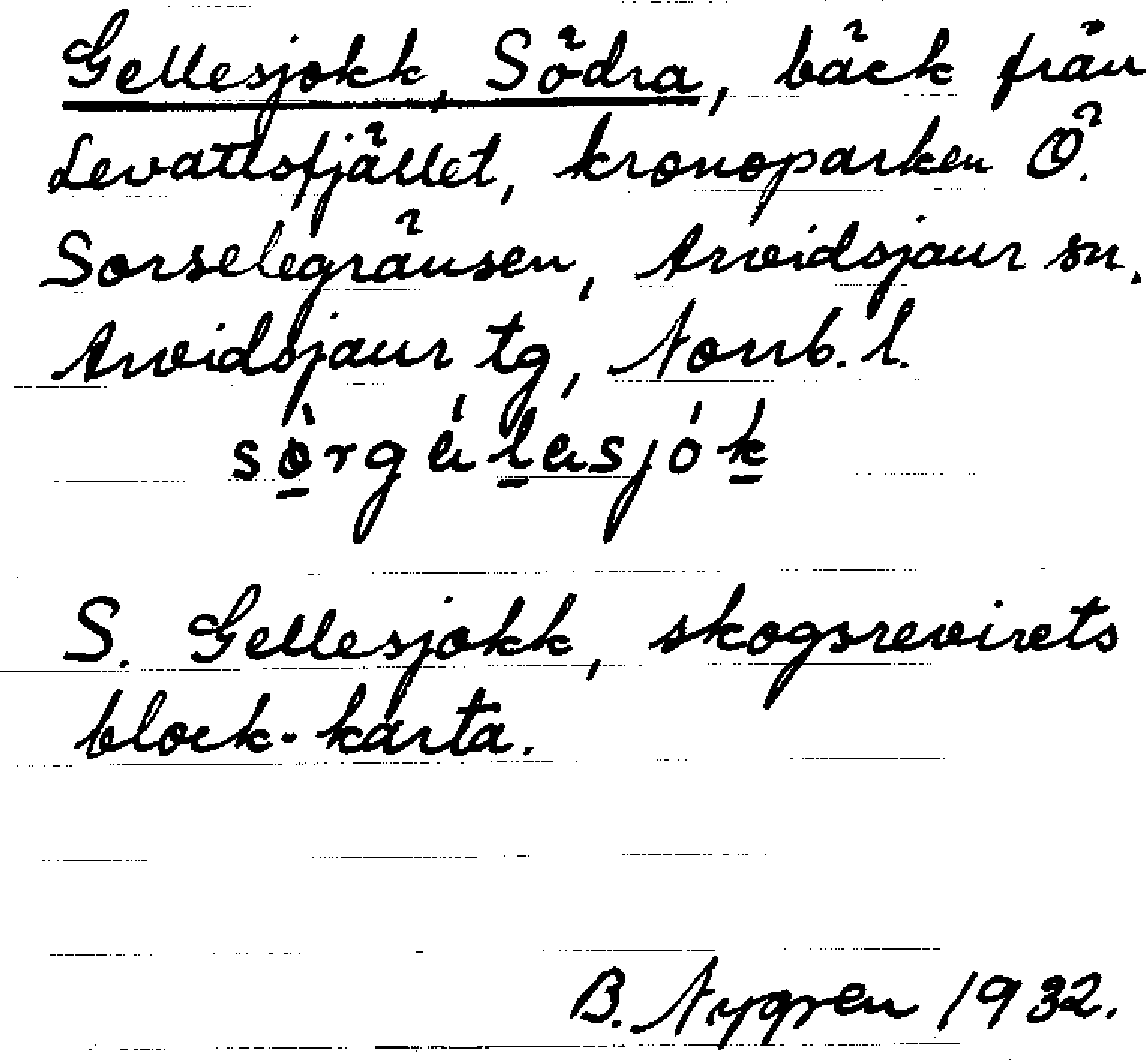 Gellesjokk, Södra, bäck från
Levattsfjället, kronoparken Ö.
Sorselegränsen, Arvidsjaur sn.
Arvidsjaur tg, Norrb. l.
S. Gellesjokk, skogsrevirets
block-karta.
B. Nygren 1932.